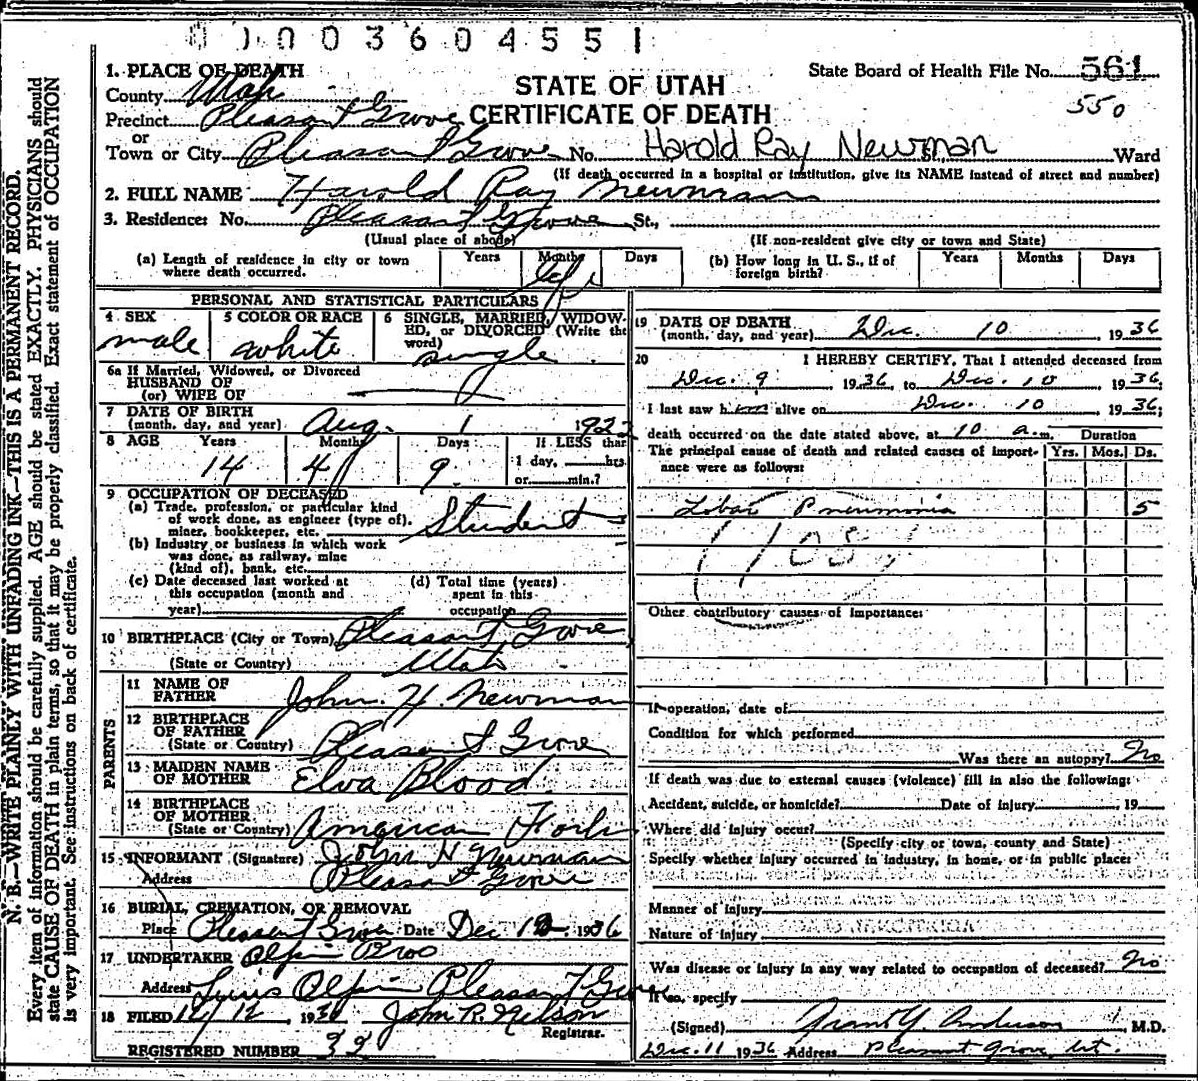 00003604551
1. PLACE OF DEATH
County Utah
Precinct Pleasant Grove
or
Town or City Pleasant Grove No. Harold Ray Newman St., Ward
STATE OF UTAH
CERTIFICATE OF DEATH
State Board of Health File No. 561
550
(If death occurred in a hospital or institution, give its NAME instead of street and number)
2. FULL NAME Harold Ray Newman
3. Residence: No. Pleasant Grove St.,
(Usual place of abode) (If non-resident give city or town and State)
(a) Length of residence in city or town where death occurred. Years Months Days Life
(b) How long in U. S., if of foreign birth? Years Months Days
PERSONAL AND STATISTICAL PARTICULARS
4 SEX male
5 COLOR OR RACE white
6 SINGLE, MARRIED, WIDOWED, or DIVORCED (Write the word) single
6a If Married, Widowed, or Divorced
HUSBAND OF
(or) WIFE OF
7 DATE OF BIRTH
(month, day, and year) Aug. 1 1922
8 AGE Years Months Days If LESS than
14 4 9 1 day, hrs.
or min.?
9 OCCUPATION OF DECEASED
(a) Trade, profession, or particular kind
of work done, as engineer (type of),
miner, bookkeeper, etc. Student
(b) Industry or business in which work
was done, as railway, mine
(kind of), bank, etc.
(c) Date deceased last worked at
this occupation (month and
year)
(d) Total time (years)
spent in this
occupation
10 BIRTHPLACE (City or Town) Pleasant Grove
(State or Country) Utah
PARENTS
11 NAME OF
FATHER John. H. Newman
12 BIRTHPLACE
OF FATHER
(State or Country) Pleasant Grove
13 MAIDEN NAME
OF MOTHER Elva Blood.
14 BIRTHPLACE
OF MOTHER
(State or Country) American Fork
15 INFORMANT (Signature) John H Newman
Address Pleasant Grove
16 BURIAL, CREMATION, OR REMOVAL
Place Pleasant Grove Date Dec 12 1936
17 UNDERTAKER Olpin Bros
Address Olpin Pleasant Grove
18 FILED 12/12, 1936 John R. Nelson
Registrar.
REGISTERED NUMBER 32
19 DATE OF DEATH
(month, day, and year) Dec. 10, 1936
20 I HEREBY CERTIFY, That I attended deceased from
Dec. 9, 1936, to Dec. 10 1936;
I last saw him alive on Dec. 10, 1936;
death occurred on the date stated above, at 10 a.m. Duration
The principal cause of death and related causes of importance were as follows: Yrs. Mos. Ds.
Lobar Pneumonia 5
108
Other contributory causes of importance:
If operation, date of
Condition for which performed
Was there an autopsy? No
If death was due to external causes (violence) fill in also the following:
Accident, suicide, or homicide? Date of injury 19
Where did injury occur?
(Specify city or town, county and State)
Specify whether injury occurred in industry, in home, or in public place:
Manner of injury
Nature of injury
Was disease or injury in any way related to occupation of deceased? No
If so, specify
(Signed) Grant Y. Anderson, M.D.
Dec. 11 1936 Address Pleasant Grove, Ut.
N. B.—WRITE PLAINLY WITH UNFADING INK—THIS IS A PERMANENT RECORD.
Every item of information should be carefully supplied. AGE should be stated EXACTLY. PHYSICIANS should
state CAUSE OF DEATH in plain terms, so that it may be properly classified. Exact statement of OCCUPATION
is very important. See instructions on back of certificate.